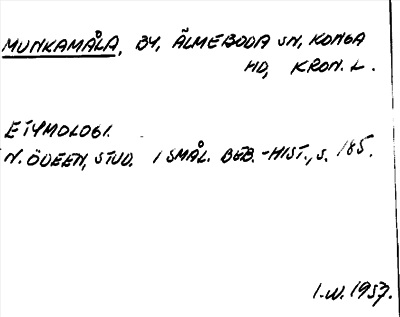 MUNKAMÅLA, BY, ÄLMEBODA SN, KONGA
HD, KRON. L.
ETYMOLOGI.
N. ÖDEEN, STUD. I SMÅL. BEB.-HIST., S. 185.
I.W. 1957.